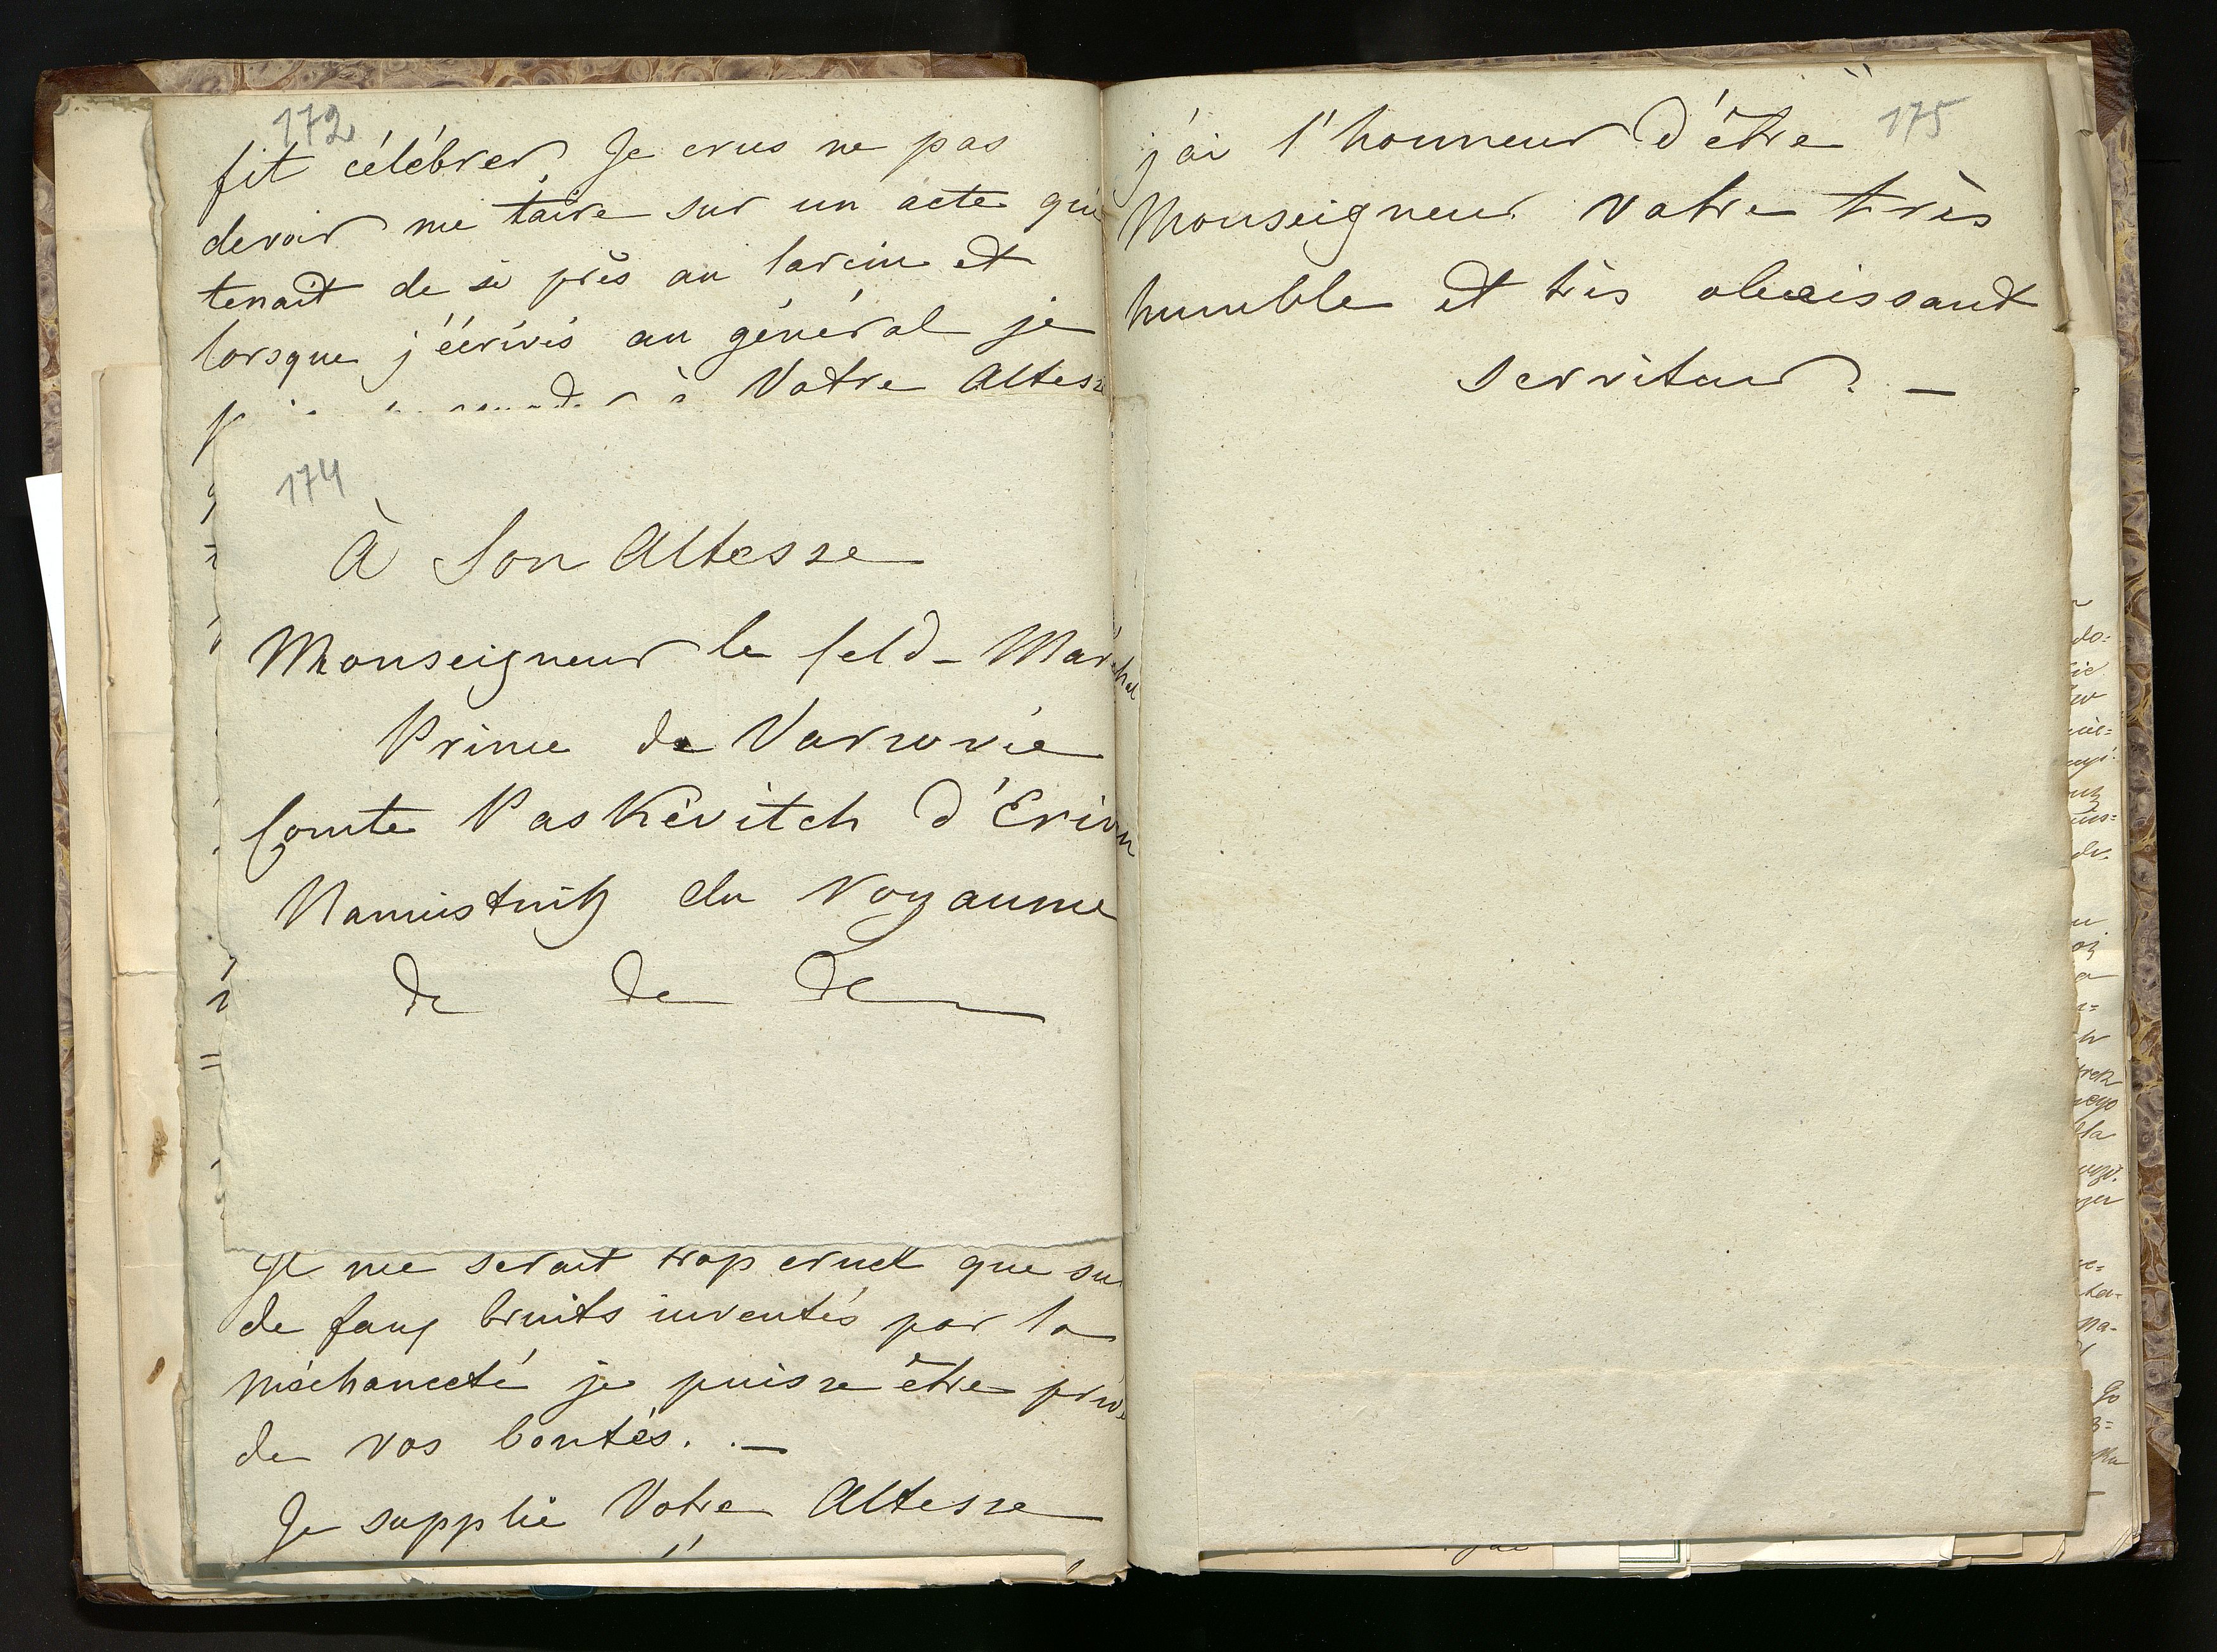 172
fit célébrer Je crus ne pas
devoir me taire sur un acte qui
tenait de si près au larcin et
lorsque j'écrivis au général je
à Votre Altesse
174
À Son Altesse
Monseigneur le feld-Maréchal
Prince de Varsovie
Comte Paskévitch d'Erivan
Namiestnik du royaume
de de de
Il me serait trop cruel que sur
de faux bruits inventés par la
méchanceté je puisse être privé
de vos bontés. . —
Je supplie Votre Altesse
175
j'ai l'honneur d'être
Monseigneur Votre très
humble et très obeissant
serviteur. —